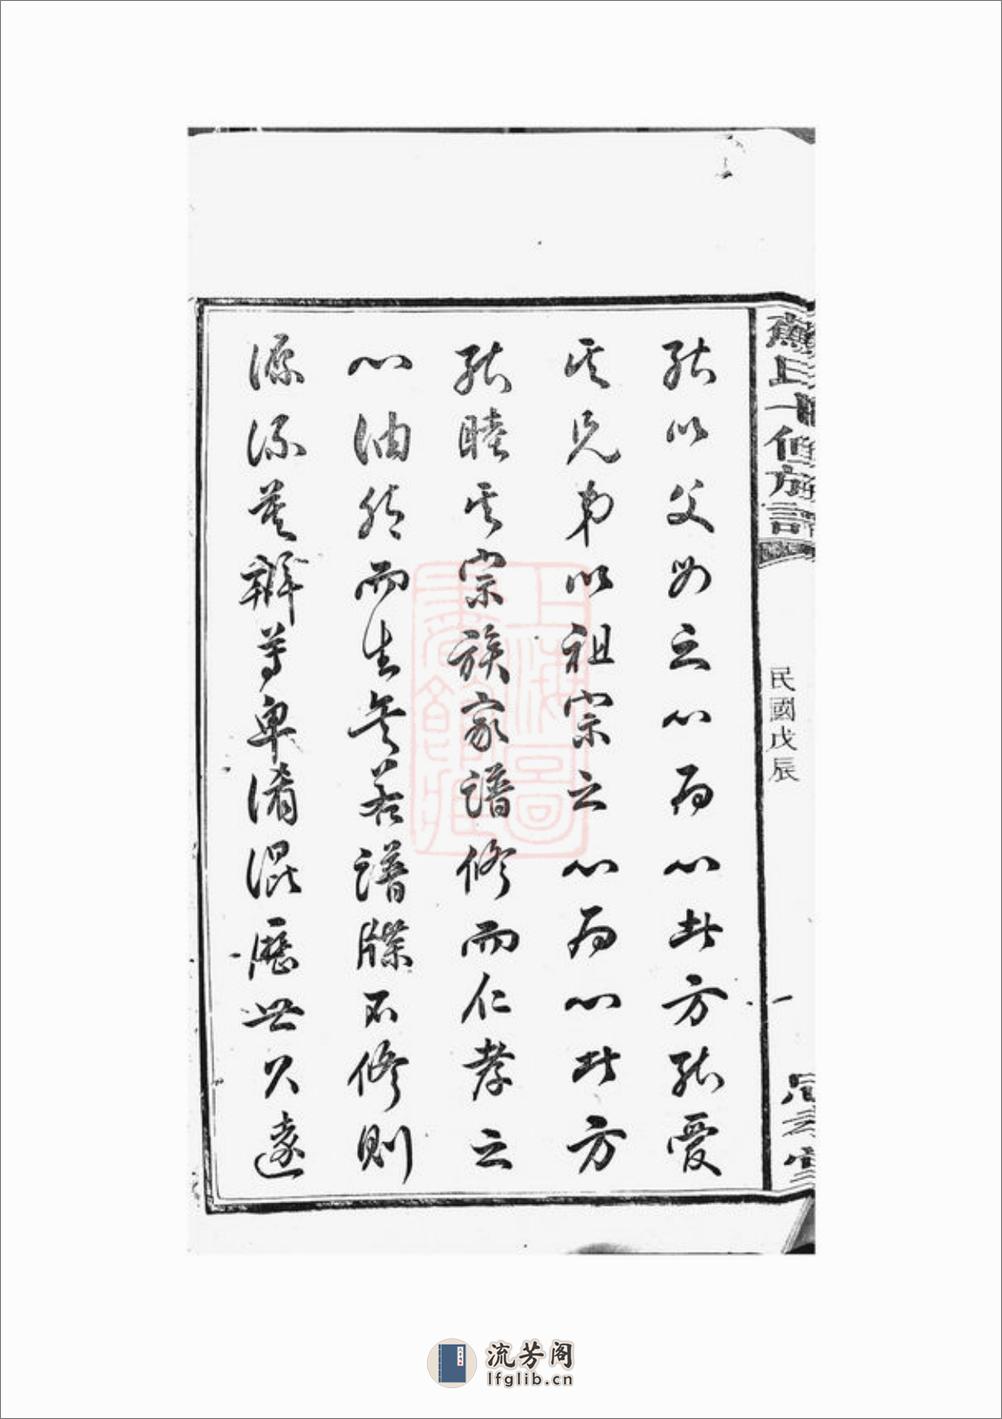 能以父母之心為心此方能愛
其兄弟以祖宗之心為心此方
能睦其宗族家譜修而仁孝之
心油然而生矣若譜牒不修則
源流莫辨尊卑淆混歷世久遠
氏十修族譜
民國戊辰
一
上海圖書館藏
流芳阁
lfglib.cn